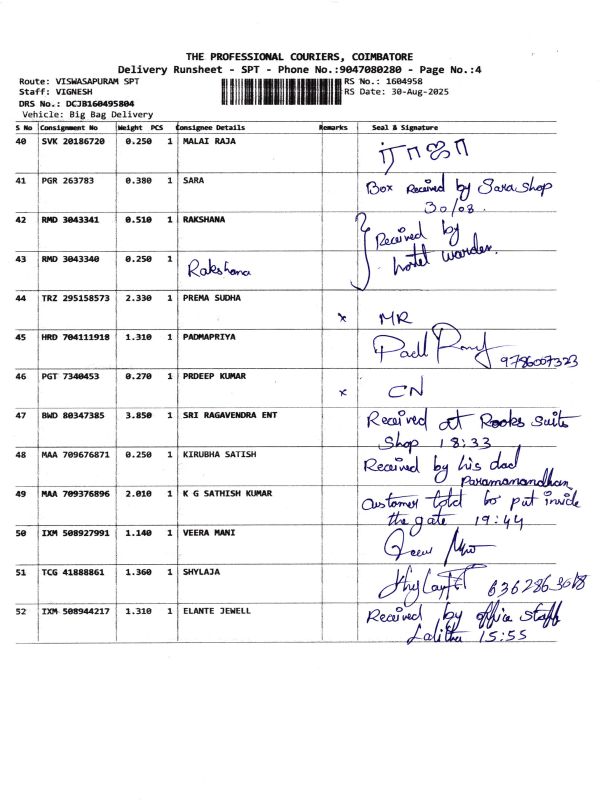 THE PROFESSIONAL COURIERS, COIMBATORE
Delivery Runsheet - SPT - Phone No.:9047080280 - Page No.:4
Route: VISWASAPURAM SPT RS No.: 1604958
Staff: VIGNESH RS Date: 30-Aug-2025
DRS No.: DCJB160495804
Vehicle: Big Bag Delivery
S No Consignment No Weight PCS Consignee Details Remarks Seal & Signature
40 SVK 20186720 0.250 1 MALAI RAJA
41 PGR 263783 0.380 1 SARA Box Received by Sara shop
30/08.
42 RMD 3043341 0.510 1 RAKSHANA Received by
hostel warden.
43 RMD 3043340 0.250 1 Rakshana
44 TRZ 295158573 2.330 1 PREMA SUDHA x MR
45 HRD 704111918 1.310 1 PADMAPRIYA 9786007323
46 PGT 7340453 0.270 1 PRDEEP KUMAR x CN
47 BWD 80347385 3.850 1 SRI RAGAVENDRA ENT Received at Rooks Suits
Shop 18:33
48 MAA 709676871 0.250 1 KIRUBHA SATISH Received by his dad
Paramanandhan
49 MAA 709376896 2.010 1 K G SATHISH KUMAR Customer told to put inside
the gate 19:44
50 IXM 508927991 1.140 1 VEERA MANI
51 TCG 41888861 1.360 1 SHYLAJA
52 IXM 508944217 1.310 1 ELANTE JEWELL Received by office staff
Lalitha 15:55